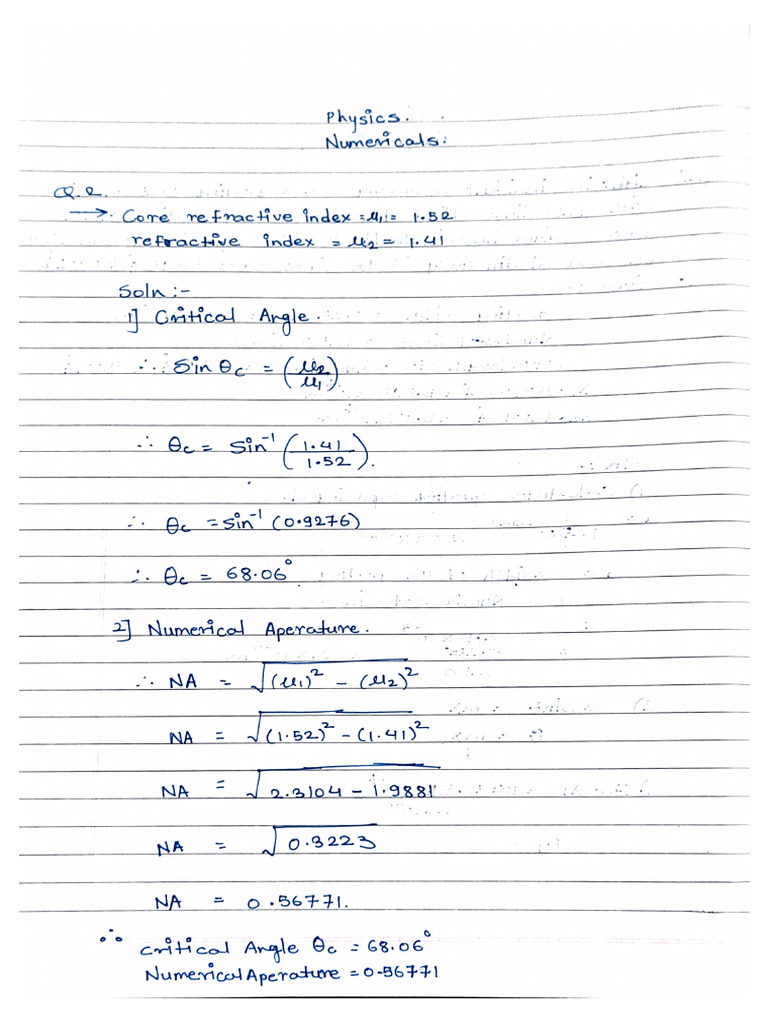 Physics.
Numericals:
Q.2.
→ Core refractive index = μ1 = 1.52
refractive index = μ2 = 1.41
Soln :-
1] Critical Angle.
∴ Sin θc = (μ2/μ1)
∴ θc = Sin⁻¹ (1.41/1.52).
∴ θc = sin⁻¹ (0.9276)
∴ θc = 68.06°
2] Numerical Aperature.
∴ NA = √(μ1)² - (μ2)²
NA = √(1.52)² - (1.41)²
NA = √2.3104 - 1.9881
NA = √0.3223
NA = 0.56771.
∴ Critical Angle θc = 68.06°
Numerical Aperature = 0.56771